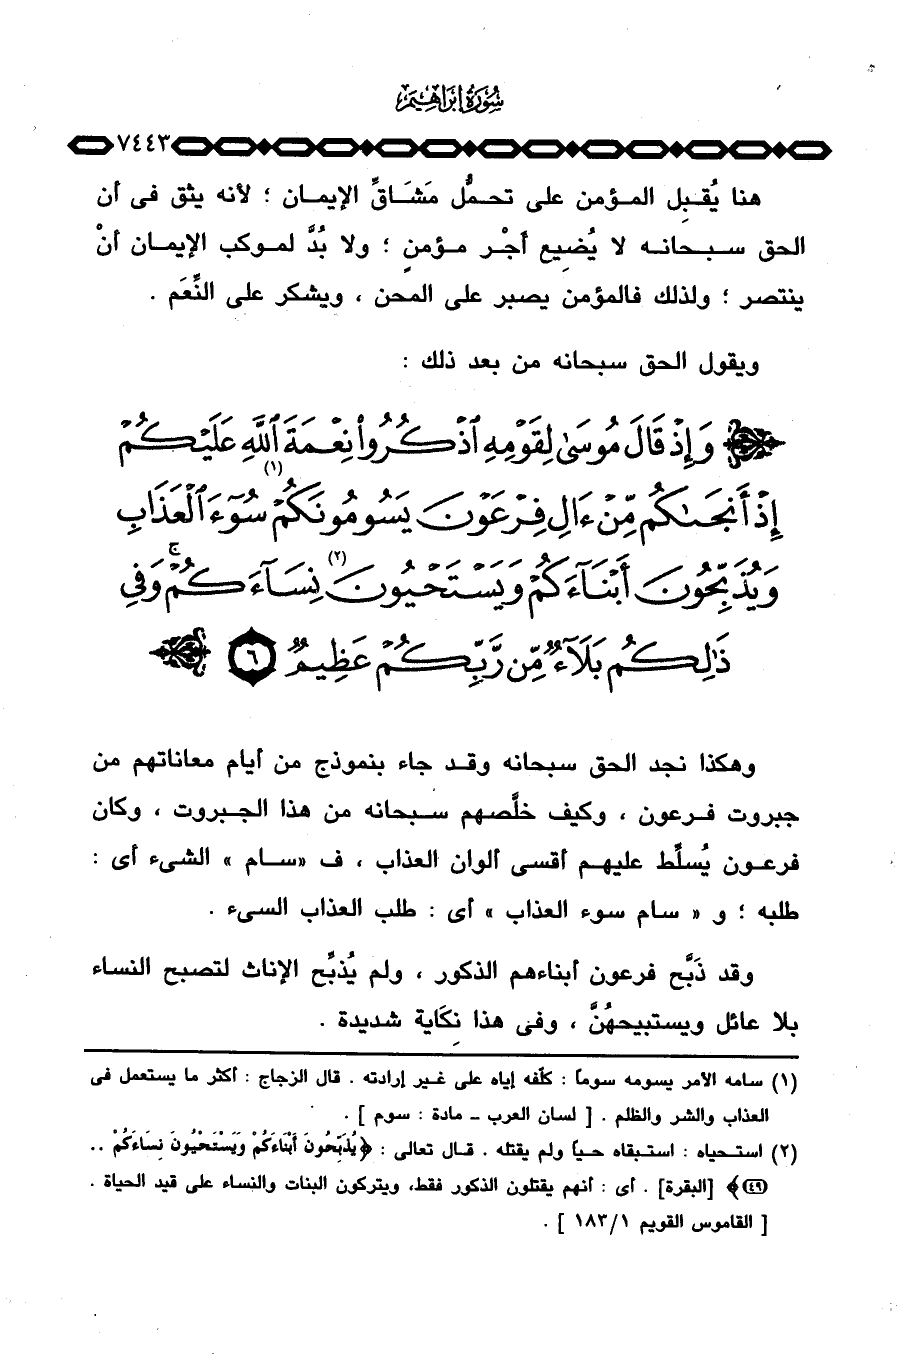 سُورَةُ إبْرَاهِيم
٧٤٤٣
هنا يُقبِل المـؤمن على تحمُّل مَشَاقِّ الإيمان ؛ لأنه يثق فى أن
الحق سبحانه لا يُضيع أجْر مؤمنٍ ؛ ولا بُدَّ لموكب الإيمان أنْ
ينتصر ؛ ولذلك فالمؤمن يصبر على المحن ، ويشكر على النِّعَم .
ويقول الحق سبحانه من بعد ذلك :
وَإِذْ قَالَ مُوسَىٰ لِقَوْمِهِ ٱذْكُرُوا۟ نِعْمَةَ ٱللَّهِ عَلَيْكُمْ
إِذْ أَنجَىٰكُم مِّنْ ءَالِ فِرْعَوْنَ يَسُومُونَكُمْ (١) سُوٓءَ ٱلْعَذَابِ
وَيُذَبِّحُونَ أَبْنَآءَكُمْ وَيَسْتَحْيُونَ (٢) نِسَآءَكُمْ ۚ وَفِى
ذَٰلِكُم بَلَآءٌ مِّن رَّبِّكُمْ عَظِيمٌ ٦
وهكذا نجد الحق سبحانه وقد جاء بنموذج من أيام معاناتهم من
جبروت فرعون ، وكيف خلَّصهم سبحانه من هذا الجبروت ، وكان
فرعون يُسلِّط عليهم أقسى ألوان العذاب ، ف «سام » الشىء أى :
طلبه ؛ و « سام سوء العذاب » أى : طلب العذاب السىء .
وقد ذَبَّح فرعون أبناءهم الذكور ، ولم يُذبِّح الإناث لتصبح النساء
بلا عائل ويستبيحهُنَّ ، وفى هذا نكَاية شديدة .
(١) سامه الأمر يسومه سوماً : كلّفه إياه على غير إرادته . قال الزجاج : أكثر ما يستعمل فى
العذاب والشر والظلم . [ لسان العرب - مادة : سوم ] .
(٢) استحياه : استبقاه حياً ولم يقتله . قال تعالى : ﴿يُذَبِّحُونَ أَبْنَاءَكُمْ وَيَسْتَحْيُونَ نِسَاءَكُمْ ..
(٤٩)﴾ [البقرة] . أى : أنهم يقتلون الذكور فقط، ويتركون البنات والنساء على قيد الحياة .
[ القاموس القويم ١/ ١٨٣ ] .